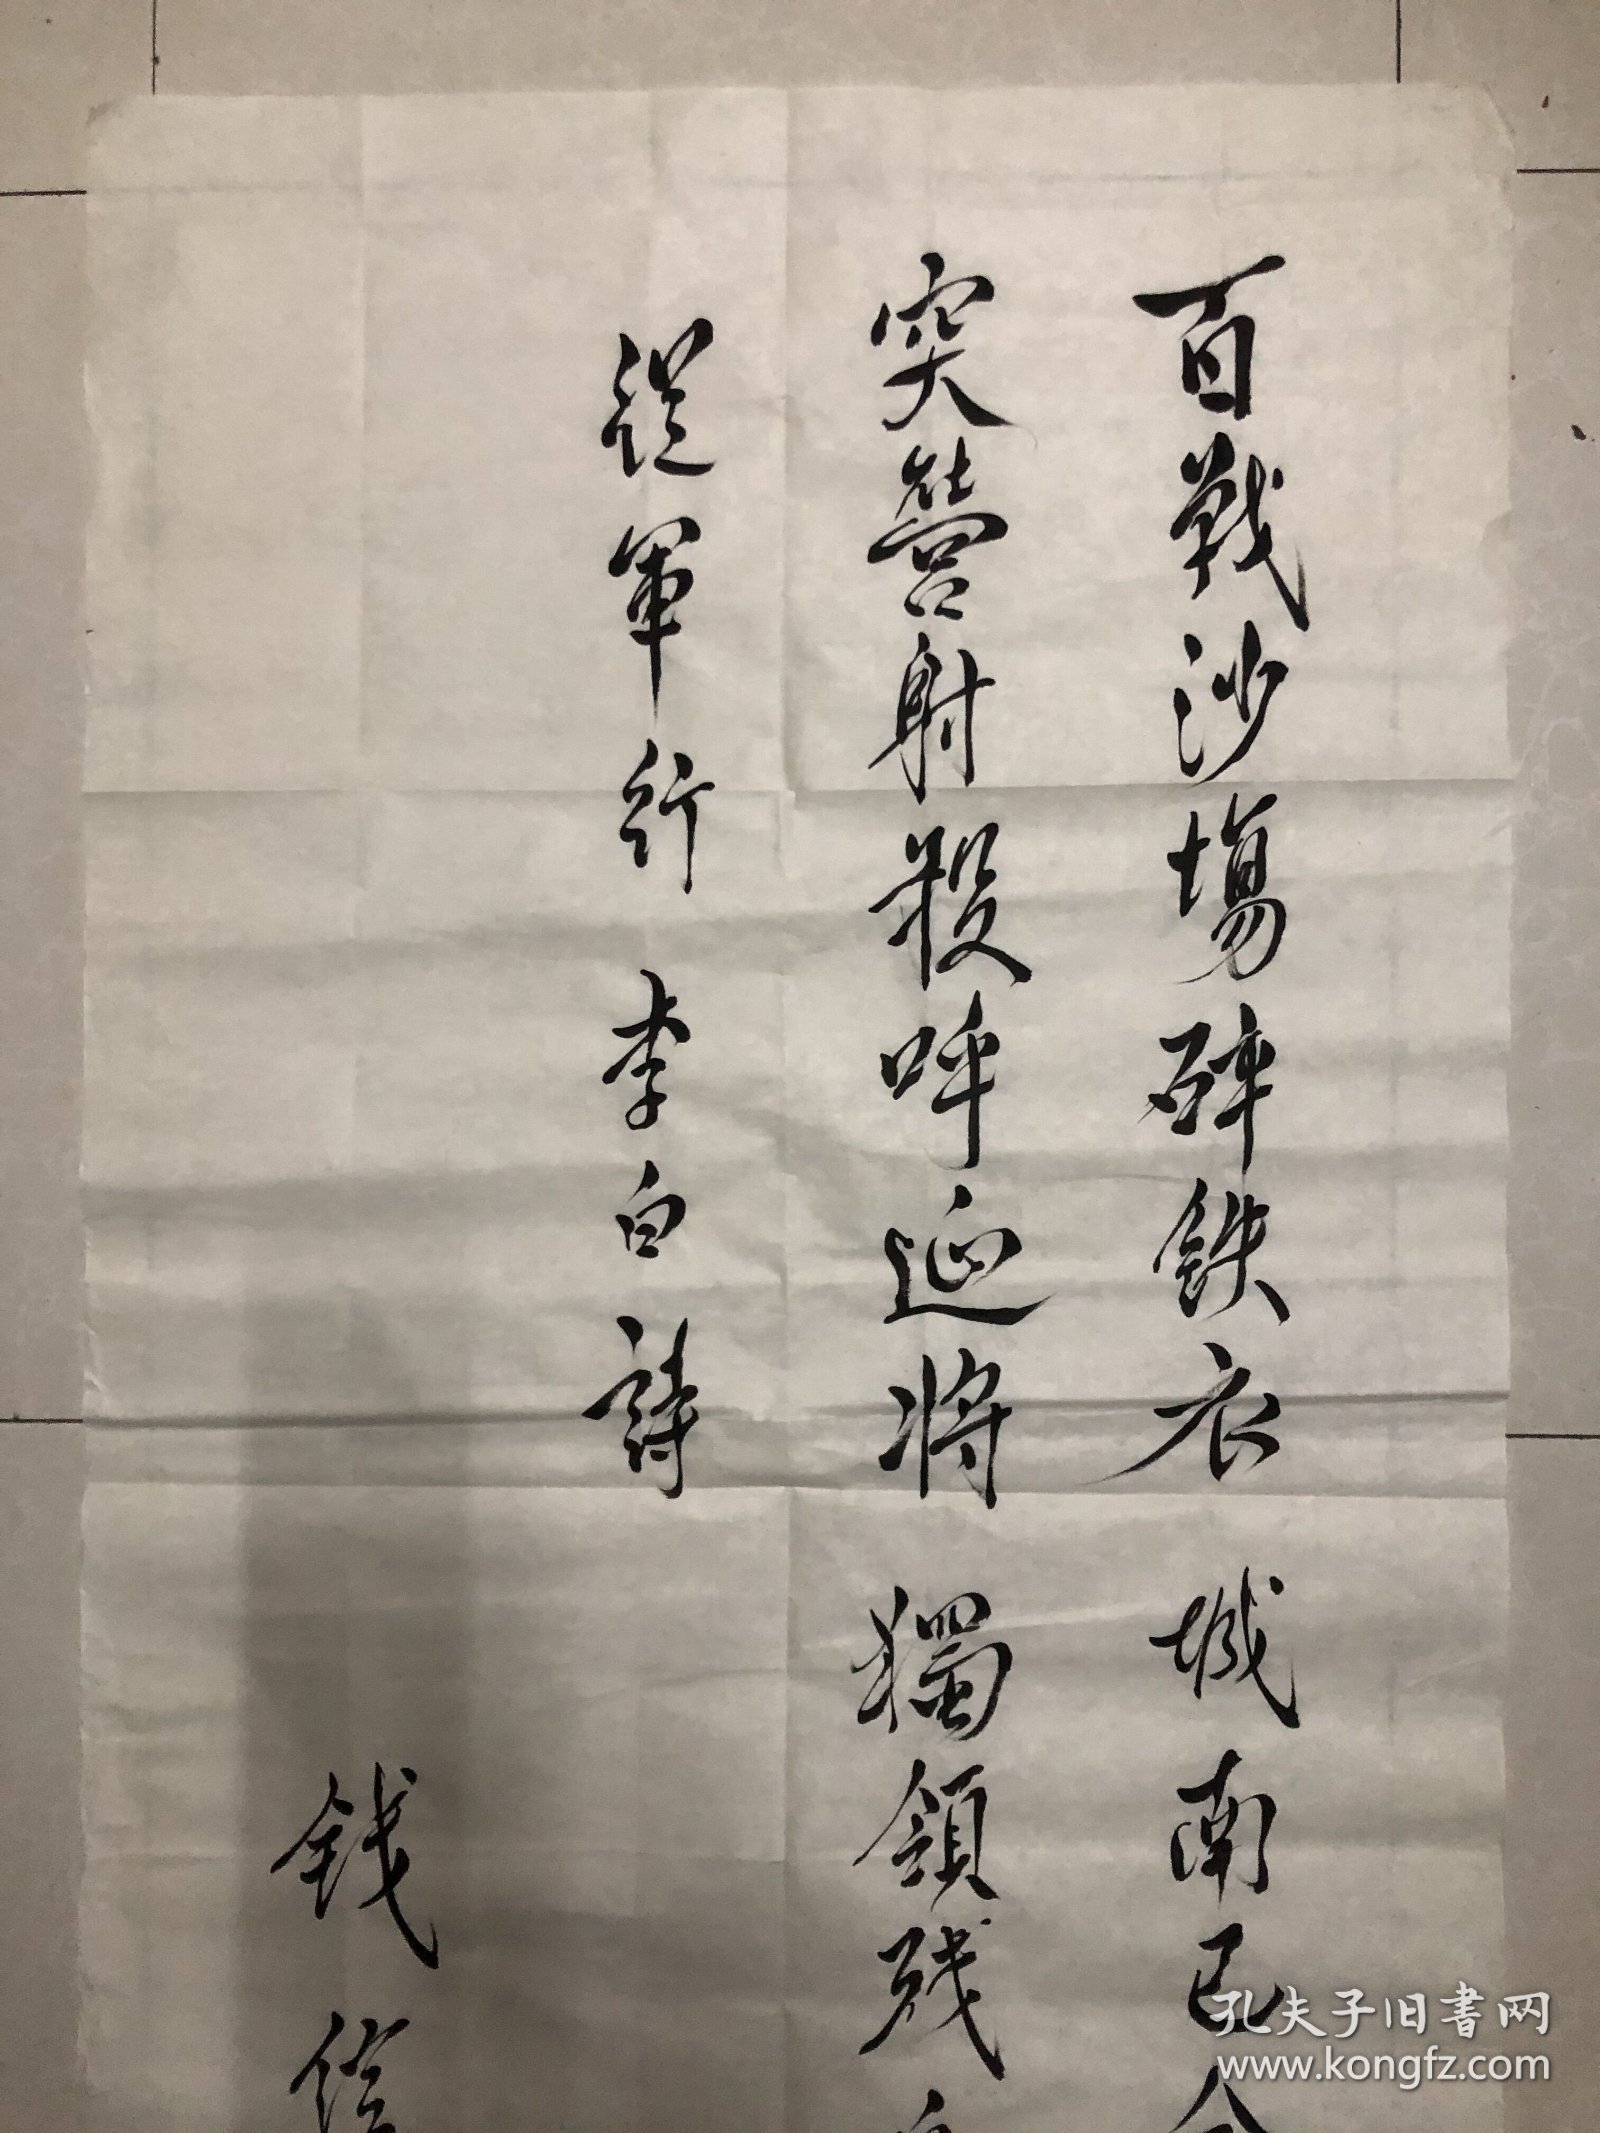 百戰沙場碎鐵衣 城南已合
突營射殺呼延將 獨領残
從軍行 李白詩
錢信
孔夫子旧书网
www.kongfz.com